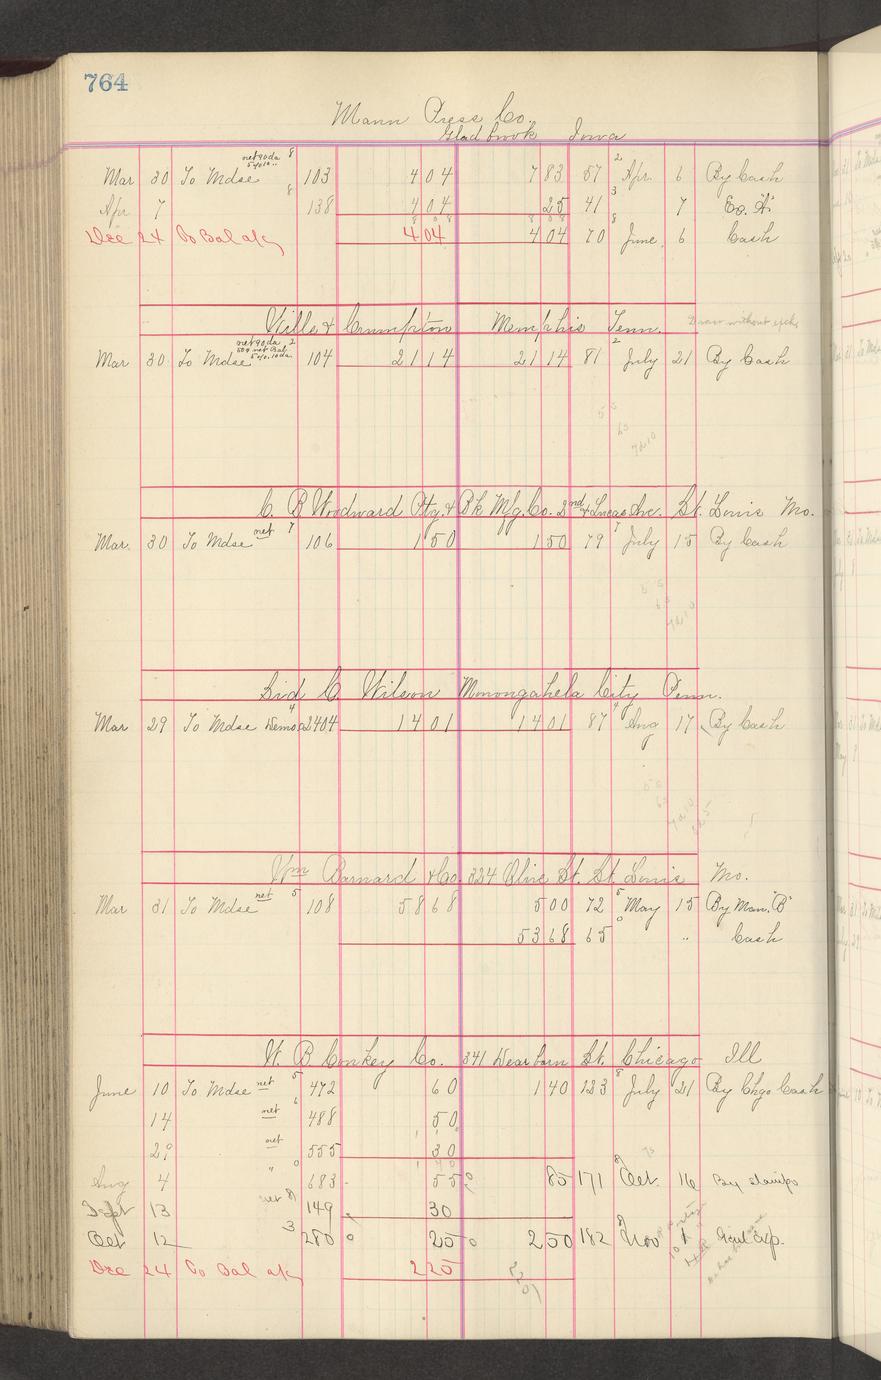 764
Mann Press Co.
Gladbrook Iowa
Mar 30 To Mdse net 90 da 8 103 4 04 7 83 57 2 Apr. 6 By Cash
Apr 7 8 138 4 04 25 41 3 7 Ex. "A"
8 0 8 8 0 8
Dec 24 To Bal a/c 4 04 4 04 70 8 June 6 Cash
Wills & Crumpton Memphis Tenn. Draw without exch.
Mar 30 To Mdse net 90 da 2 104 21 14 21 14 81 2 July 21 By Cash
C B Woodward Ptg. & Bk Mfg. Co. 2nd & Lucas Ave. St. Louis Mo.
Mar 30 To Mdse net 7 106 1 50 1 50 79 7 July 15 By Cash
Sid C Wilson Monongahela City Penn.
Mar 29 To Mdse Demo 4 2404 14 01 14 01 87 4 Aug 17 By Cash
Wm Barnard & Co. 324 Olive St. St. Louis Mo.
Mar 31 To Mdse net 5 108 58 68 5 00 72 5 May 15 By Man. "B"
53 68 65 0 " Cash
W. B Conkey Co. 341 Dearborn St. Chicago Ill
June 10 To Mdse net 5 472 60 1 40 123 8 July 21 By Chgo Cash
14 net 6 488 50
29 net 555 30
1 40
Aug 4 " 0 683 55 85 171 8 Oct. 16 By Stamps
Sept 13 net 8 149 30
Oct 12 3 280 25 2 50 182 8 Nov 1 Genl Exp.
Dec 24 To Bal a/c 2 25